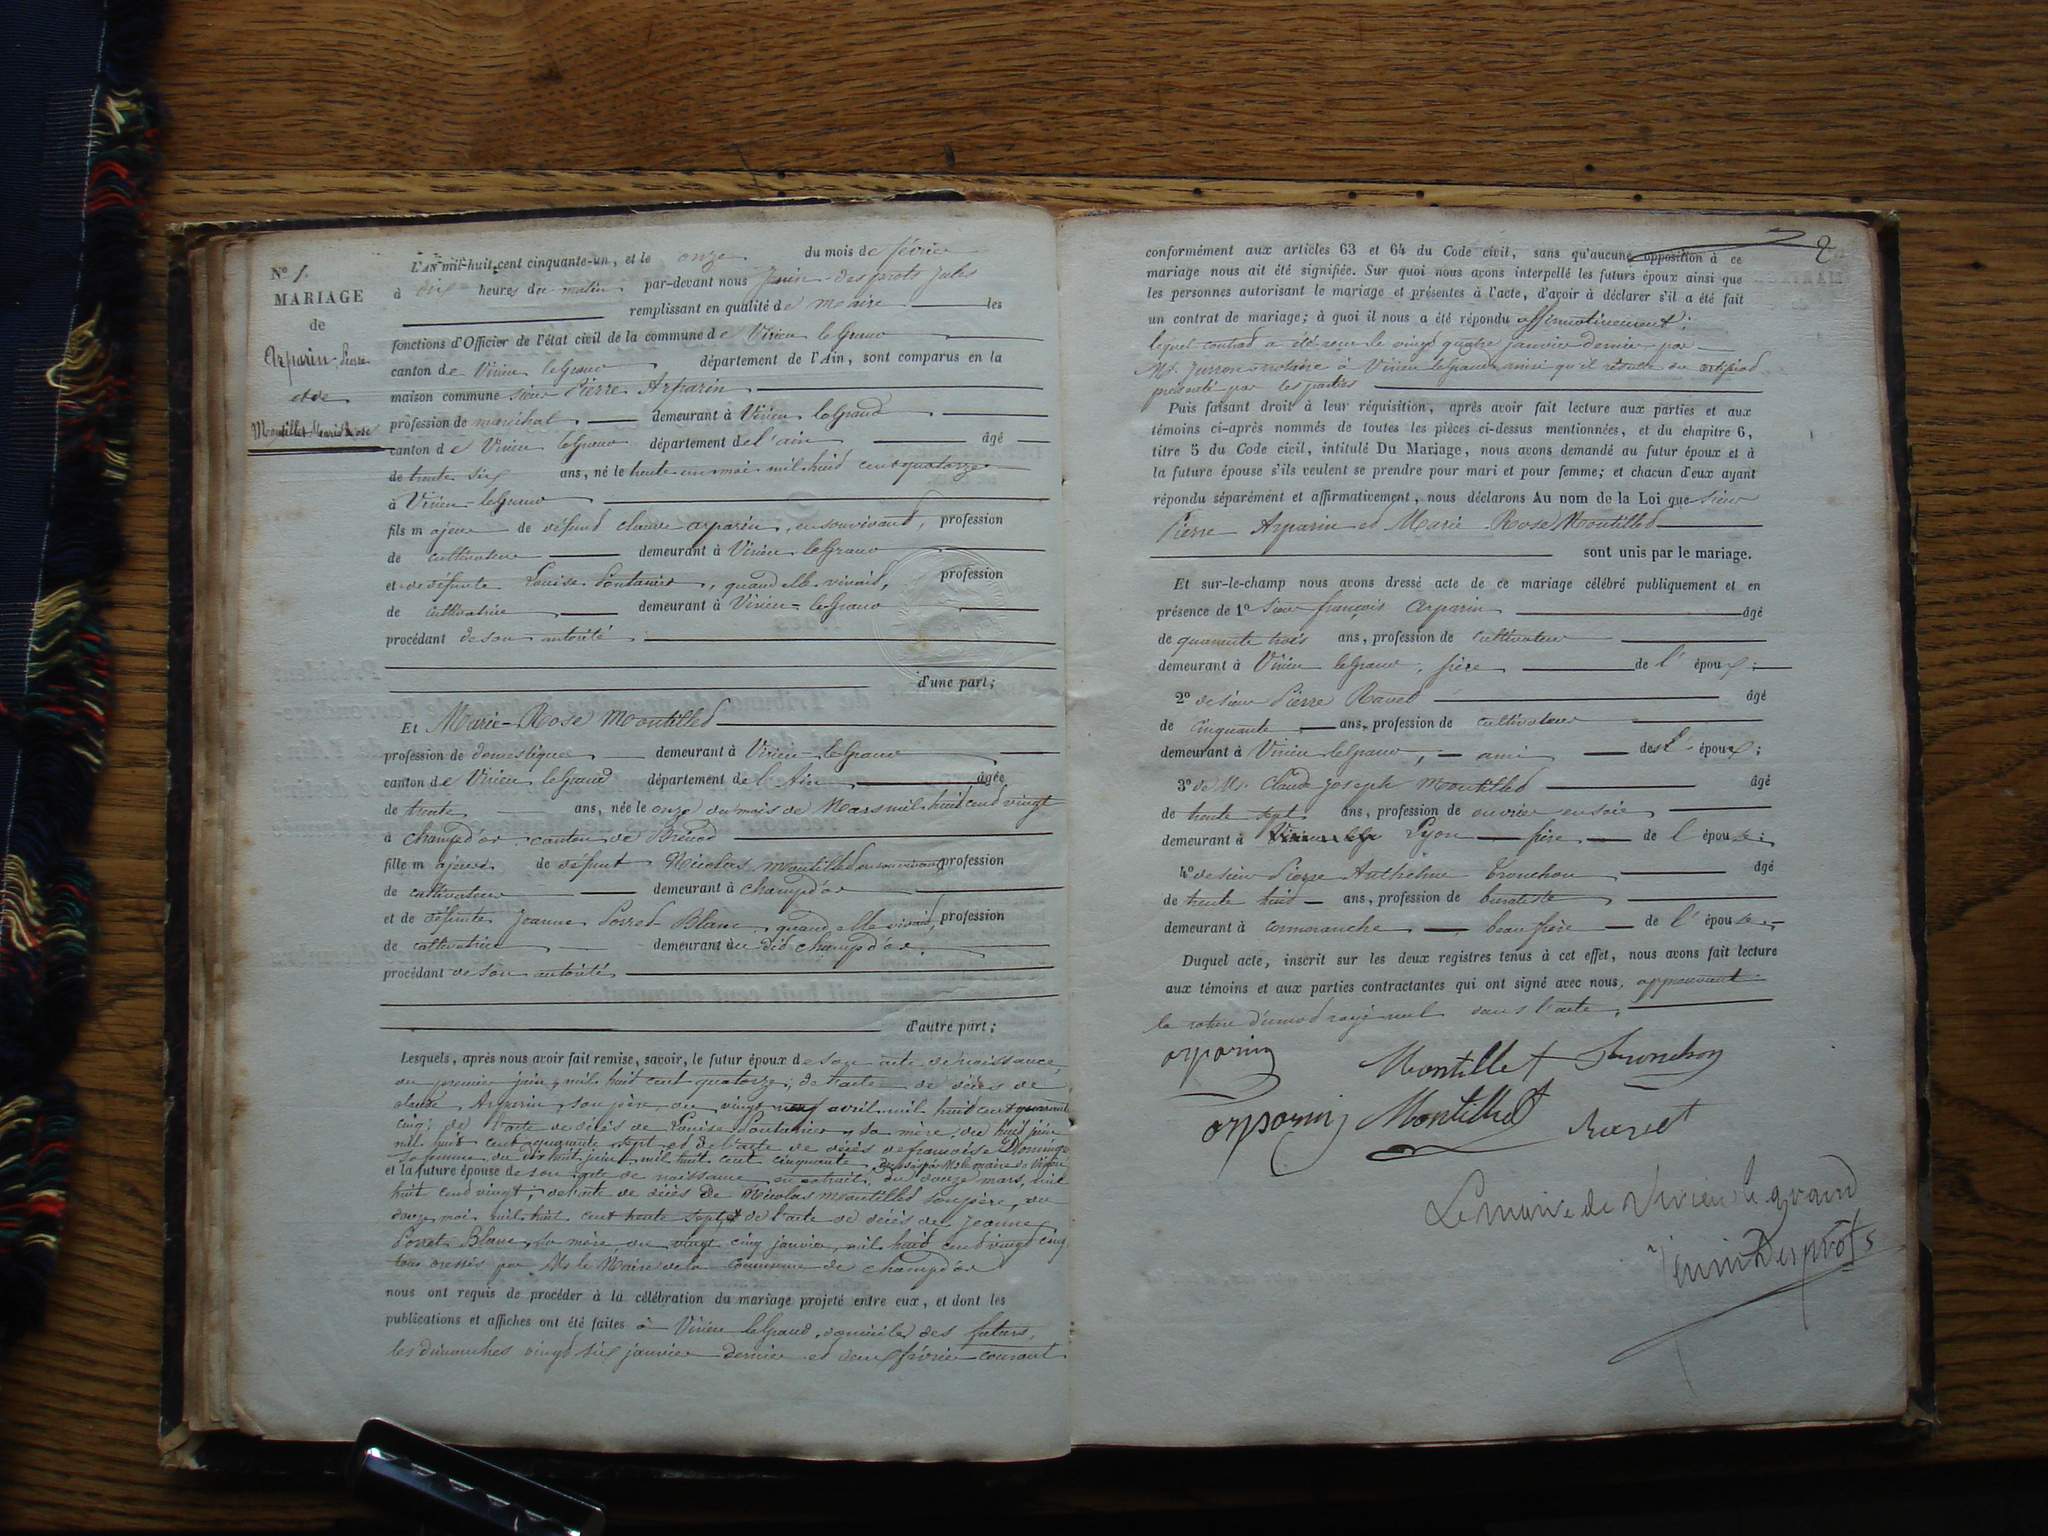 No 1.
MARIAGE
de
Arparin Pierre
et de
Montillet Marie Rose
L'AN mil-huit cent cinquante-un, et le onze du mois de février
à dix heures du matin par-devant nous Jenin des prots Jules
remplissant en qualité de Maire les
fonctions d'Officier de l'état civil de la commune de Virieu le Grand
canton de Virieu le Grand département de l'Ain, sont comparus en la
maison commune sieur Pierre Arparin
profession de maréchal demeurant à Virieu le Grand
canton de Virieu le Grand département de l'ain âgé
de trente six ans, né le trente un mai mil huit cent quatorze
à Virieu-le Grand
fils majeur de défunt claude arparin, en son vivant, profession
de cultivateur demeurant à Virieu le Grand
et de défunte Louise Pontanier, quand elle vivait, profession
de cultivatrice demeurant à Virieu-le Grand
procédant de son autorité
d'une part;
Et Marie-Rose Montillet
profession de domestique demeurant à Virieu-le Grand
canton de Virieu le Grand département de l'Ain âgée
de trente ans, née le onze du mois de Mars mil huit cent vingt
à Champdor canton de Brénod
fille majeure de défunt Nicolas Montillet en son vivant profession
de cultivateur demeurant à Champdor
et de défunte Jeanne Porret-Blanc quand elle vivait, profession
de cultivatrice demeurant au dit Champdor
procédant de son autorité
d'autre part;
Lesquels, après nous avoir fait remise, savoir, le futur époux de son acte de naissance,
du premier juin, mil huit cent quatorze; de l'acte de décès de
claude Arparin, son père, du vingt neuf avril mil huit cent quarante
cinq; de l'acte de décès de Louise Pontanier, sa mère, du huit juin
mil huit cent quarante sept et de l'acte de décès de françoise Doming
sa femme du dix huit juin mil huit cent cinquante dressés par M. le maire de Virieu
et la future épouse de son acte de naissance en extrait, du douze mars, mil
huit cent vingt; de l'acte de décès de Nicolas Montillet son père, du
douze mai mil huit cent trente sept et de l'acte de décès de Jeanne
Porret Blanc, sa mère, du vingt cinq janvier, mil huit cent vingt cinq
tous dressés par Mr le Maire de la commune de Champdor
nous ont requis de procéder à la célébration du mariage projeté entre eux, et dont les
publications et affiches ont été faites à Virieu le Grand, domicile des futurs,
les dimanches vingt six janvier dernier et deux février courant
2
conformément aux articles 63 et 64 du Code civil, sans qu'aucune opposition à ce
mariage nous ait été signifiée. Sur quoi nous avons interpellé les futurs époux ainsi que
les personnes autorisant le mariage et présentes à l'acte, d'avoir à déclarer s'il a été fait
un contrat de mariage; à quoi il nous a été répondu affirmativement;
lequel contrat a été reçu le vingt quatre janvier dernier par
Me. Jurron notaire à Virieu le Grand ainsi qu'il résulte du certificat
présenté par les parties
Puis faisant droit à leur réquisition, après avoir fait lecture aux parties et aux
témoins ci-après nommés de toutes les pièces ci-dessus mentionnées, et du chapitre 6,
titre 5 du Code civil, intitulé Du Mariage, nous avons demandé au futur époux et à
la future épouse s'ils veulent se prendre pour mari et pour femme; et chacun d'eux ayant
répondu séparément et affirmativement, nous déclarons Au nom de la Loi que sieur
Pierre Arparin et Marie Rose Montillet
sont unis par le mariage.
Et sur-le-champ nous avons dressé acte de ce mariage célébré publiquement et en
présence de 1o sieur françois Arparin âgé
de quarante trois ans, profession de cultivateur
demeurant à Virieu le Grand, frère de l'époux;
2o de sieur Pierre Ravet âgé
de cinquante ans, profession de cultivateur
demeurant à Virieu le Grand, ami de l'époux;
3o de Mr. Claude Joseph Montillet âgé
de trente sept ans, profession de ouvrier en soie
demeurant à Lyon frère de l'épouse;
4o de sieur Pierre Anthelme Tronchon âgé
de trente huit ans, profession de buraliste
demeurant à cormoranche beau frère de l'épouse;
Duquel acte, inscrit sur les deux registres tenus à cet effet, nous avons fait lecture
aux témoins et aux parties contractantes qui ont signé avec nous, approuvant
la rature d'un mot rayé nul dans l'acte
arparin Montillet Tronchon
arparin Montillet Ravet
Le maire de Virieu le grand
Jenin Desprots